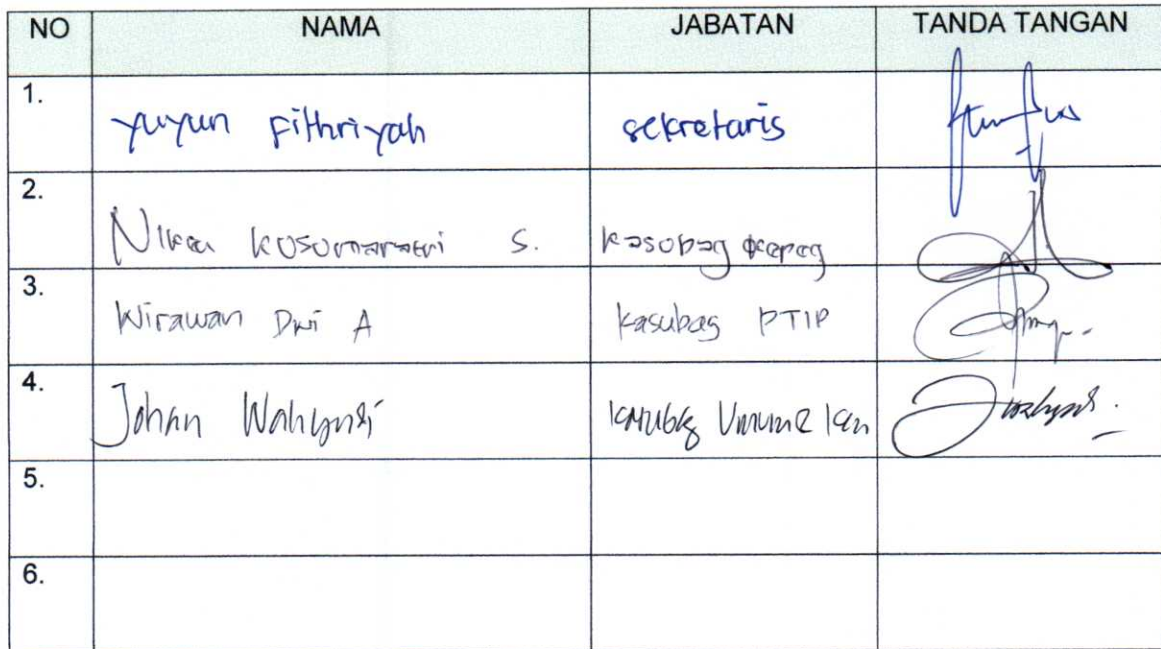 NO NAMA JABATAN TANDA TANGAN
1. yuyun Fithriyah sekretaris
2. Kusumaratri S. Kasubag Kepeg
3. Wirawan Dwi A Kasubag PTIP
4. Johan Wahyudi Kasubag Umum & Keu
5.
6.